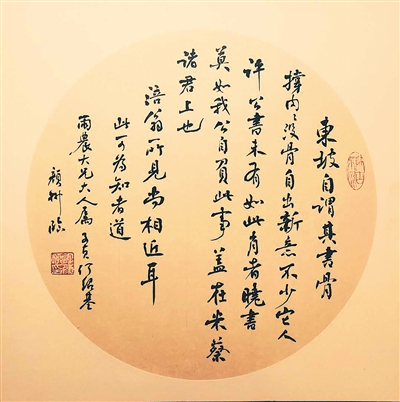 東坡自謂其書骨
撐肉々沒骨自出新意不少它人
評公書未有如此肯者曉書
莫如我公自買此事蓋在米蔡
諸君上也
涪翁所見尚相近耳
此可為知者道
雨農大兄大人属 子貞何紹基
臨